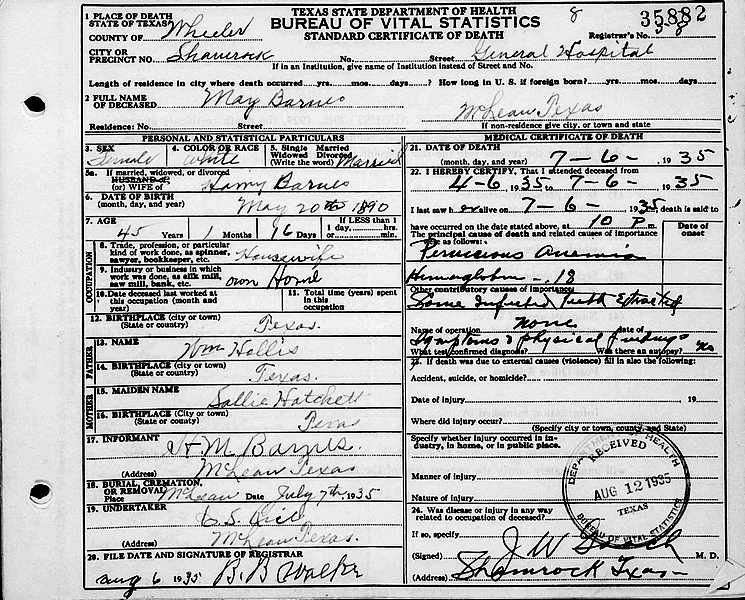 TEXAS STATE DEPARTMENT OF HEALTH
BUREAU OF VITAL STATISTICS
STANDARD CERTIFICATE OF DEATH
8
35882
Registrar's No. 58
1 PLACE OF DEATH
STATE OF TEXAS
COUNTY OF Wheeler
CITY OR PRECINCT NO. Shamrock No. Street General Hospital
If in an Institution, give name of Institution instead of Street and No.
Length of residence in city where death occurred yrs. mos. days? How long in U. S. if foreign born? yrs. mos. days.
2 FULL NAME OF DECEASED May Barnes
McLean Texas
Residence: No. Street If non-residence give city, or town and state
PERSONAL AND STATISTICAL PARTICULARS
3. SEX Female
4. COLOR OR RACE White
5. Single Married Widowed Divorced (Write the word) Married
5a. If married, widowed, or divorced
HUSBAND OF
(or) WIFE OF Harry Barnes
6. DATE OF BIRTH
(month, day, and year) May 20 1890
7. AGE 45 Years 1 Months 16 Days If LESS than 1 1 day, hrs. or min.
OCCUPATION
8. Trade, profession, or particular kind of work done, as spinner, sawyer, bookkeeper, etc. Housewife
9. Industry or business in which work was done, as silk mill, saw mill, bank, etc. own Home
10. Date deceased last worked at this occupation (month and year)
11. Total time (years) spent in this occupation
12. BIRTHPLACE (city or town)
(State or country) Texas.
FATHER
13. NAME Wm Hollis
14. BIRTHPLACE (city or town)
(State or country) Texas.
MOTHER
15. MAIDEN NAME Sallie Hatchett
16. BIRTHPLACE (City or town)
(State or country) Texas
17. INFORMANT H M Barnes.
(Address) McLean Texas
18. BURIAL, CREMATION, OR REMOVAL
Place McLean Date July 7th 1935
19. UNDERTAKER C. S. Rice
(Address) McLean Texas.
20. FILE DATE AND SIGNATURE OF REGISTRAR
Aug 6 1935 B. B Walker
MEDICAL CERTIFICATE OF DEATH
21. DATE OF DEATH
(month, day, and year) 7-6-, 1935
22. I HEREBY CERTIFY, That I attended deceased from
4-6, 1935 to 7-6-, 1935
I last saw her alive on 7-6-, 1935, death is said to
have occurred on the date stated above, at 10 P m.
The principal cause of death and related causes of importance were as follows:
Date of onset
Pernicious Anemia
Hemoglobin - 18
Other contributory causes of importance:
Some Infected Teeth Extracted
Name of operation none date of
Symptoms & physical findings
What test confirmed diagnosis? Was there an autopsy? no
23. If death was due to external causes (violence) fill in also the following:
Accident, suicide, or homicide?
Date of injury 19
Where did injury occur?
(Specify city or town, county, and State)
Specify whether injury occurred in industry, in home, or in public place.
Manner of injury
Nature of injury
24. Was disease or injury in any way related to occupation of deceased?
If so, specify
(Signed) J. W. M. D.
(Address) Shamrock Texas
DEPARTMENT OF HEALTH
RECEIVED
AUG 12 1935
TEXAS
BUREAU OF VITAL STATISTICS